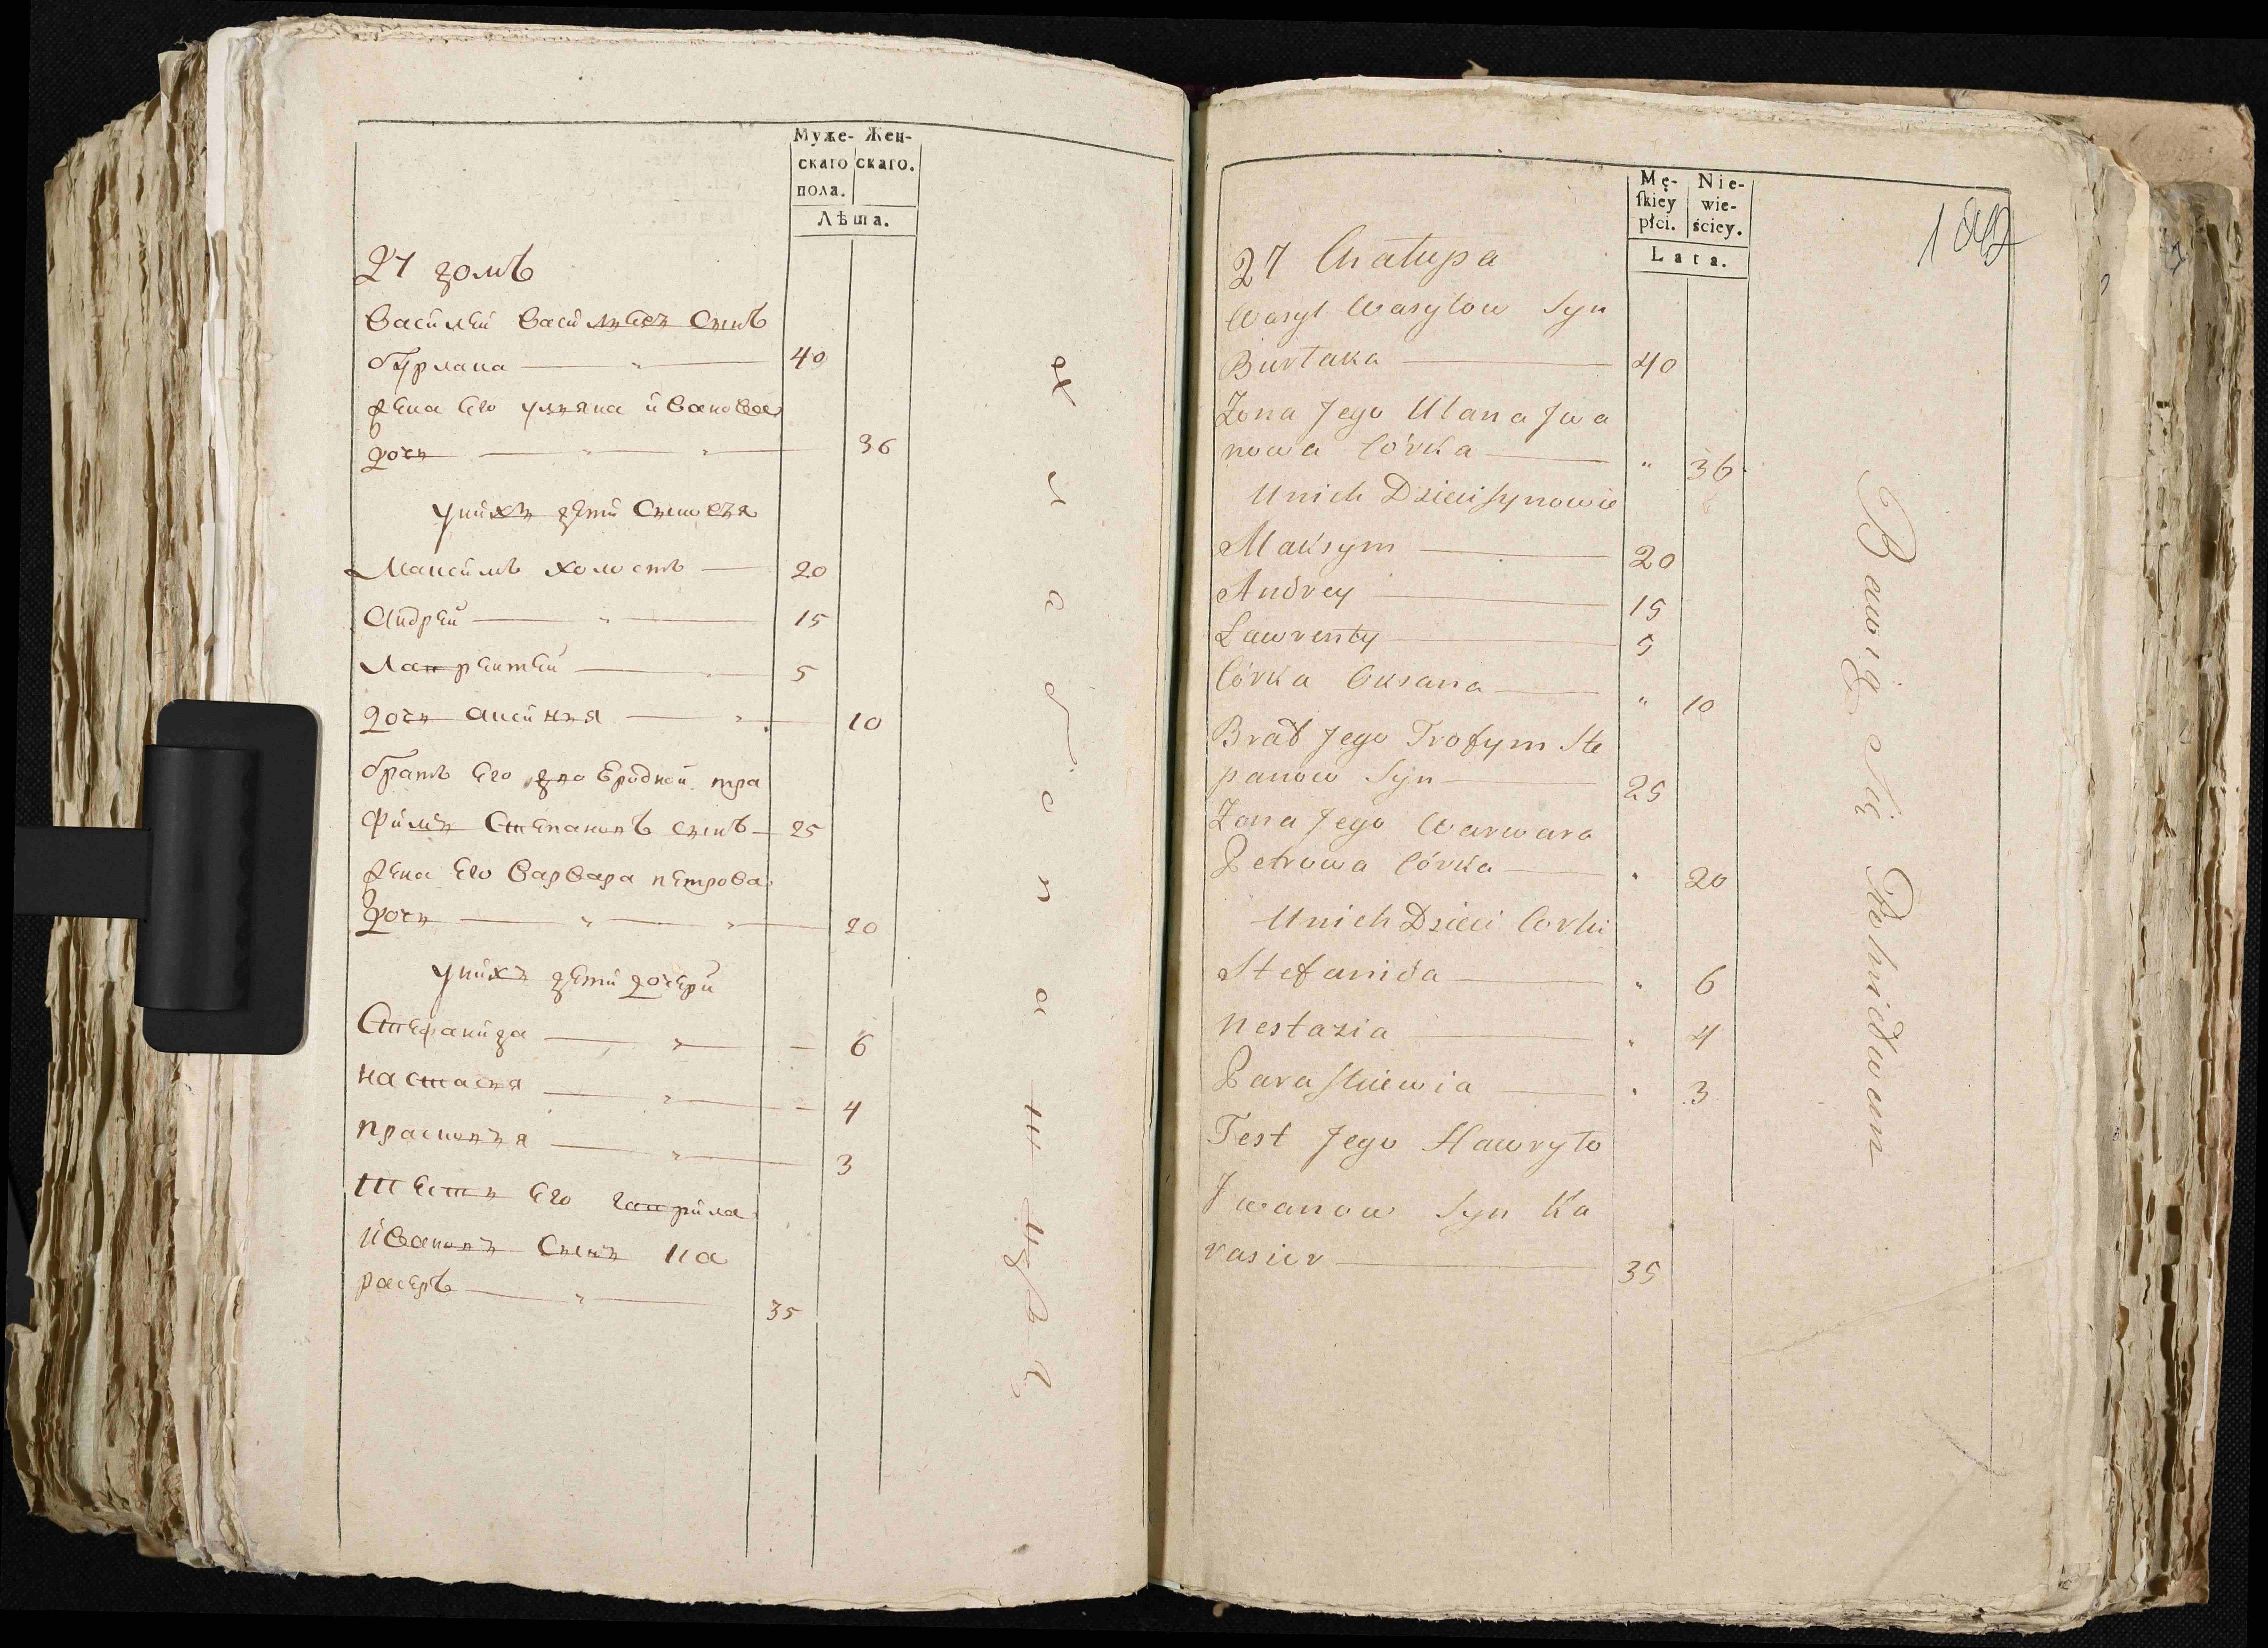 Муже- Жен-
скаго скаго.
пола.
Лѣта.
27 домъ
Василей Васильевъ Сынъ
бурлака — " — 40
жена Его ульяна ивановa
дочь — " — " — 36
унихъ дети Сыновья
Максимъ холостъ — 20
Андрей — " — 15
Лаврентей — " — 5
дочь аксинья — " — 10
братъ Его дво Еродной тра
фимъ Степановъ сынъ — 25
жена Его Варвара петрова
дочь — " — " — 20
унихъ дети дочери
Стефанида — " — 6
настасья — " — 4
прасковья — " — 3
тесть Его гаврила
ивановъ Сынъ ка
расеръ — " — 35
27 Chałupa
Mę- Nie-
skiey wie-
płci. ściey.
Lata.
Wasyl Wasylow Syn
Burłaka — 40
Żona Jego Ulana Jwa
nowa Córka — " 36
Unich Dzieci Synowie
Maksym — 20
Andrey — 15
Ławrenty — 5
Córka Oksana — " 10
Brat Jego Trofym Ste
panow Syn — 25
Żona Jego Warwara
Petrowa Córka — " 20
Unich Dzieci Corki
Stefanida — " 6
Nestazia — " 4
Paraskiewia — " 3
Test Jego Hawryło
Jwanow Syn Ka
rasier — 35
Bawią się Rolnictwem